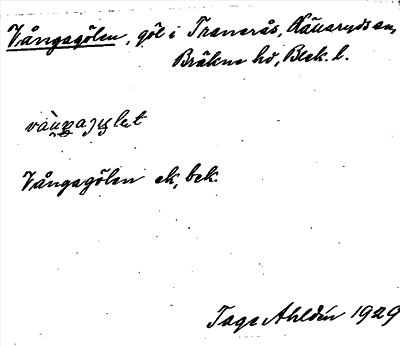 Vångagölen, göl i Tranarås, Källaryds sn,
Bräkne hd, Blek. l.
Vångagölen ek, bek.
Tage Ahldin 1929